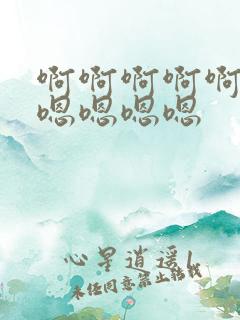 啊啊啊啊啊
嗯嗯嗯嗯
心星逍遥l
未经同意禁止转载